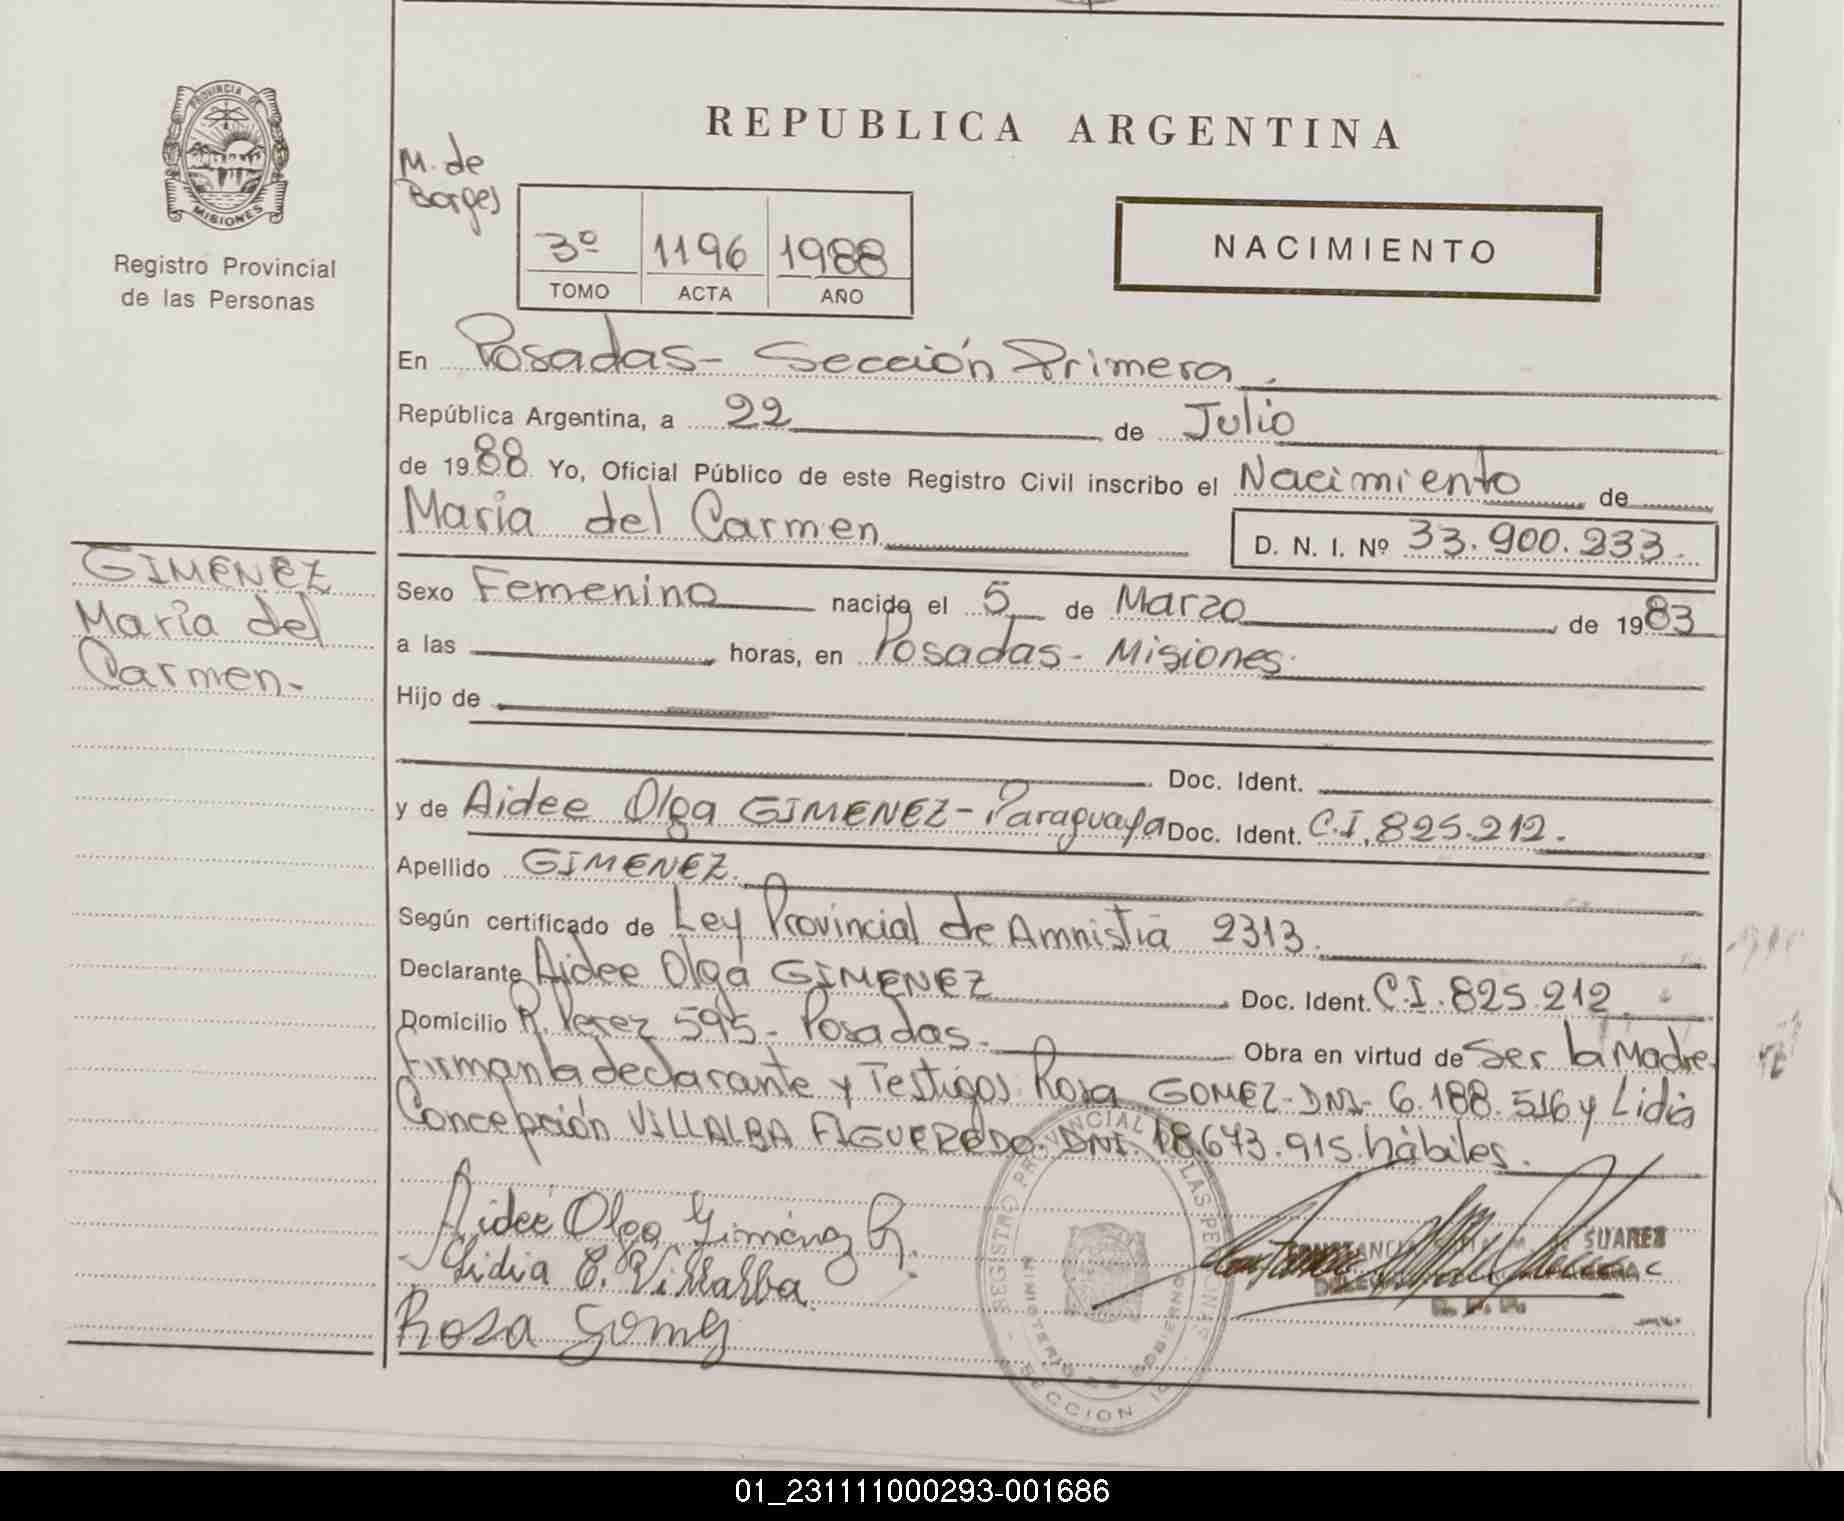 PROVINCIA DE
MISIONES
Registro Provincial
de las Personas
GIMENEZ
María del
Carmen-
REPUBLICA ARGENTINA
M. de
Borges
3º 1196 1988
TOMO ACTA AÑO
NACIMIENTO
En Posadas- Sección Primera.
República Argentina, a 22 de Julio
de 1988 Yo, Oficial Público de este Registro Civil inscribo el Nacimiento de
María del Carmen D. N. I. Nº 33.900.233.
Sexo Femenino nacido el 5 de Marzo de 1983
a las horas, en Posadas- Misiones.
Hijo de
Doc. Ident.
y de Aidee Olga GIMENEZ- Paraguaya Doc. Ident. C.I. 825.212.
Apellido GIMENEZ.
Según certificado de Ley Provincial de Amnistía 2313.
Declarante Aidee Olga GIMENEZ Doc. Ident. C.I. 825.212
Domicilio R. Perez 595- Posadas- Obra en virtud de Ser la Madre-
Firman la declarante y Testigos: Rosa GOMEZ- DNI- 6.188.516 y Lidia
Concepción VILLALBA FIGUEREDO. DNI. 18.673.915. hábiles.
Aideé Olga Giménez R.
Lidia C. Villalba.
Rosa Gomez
REGISTRO PROVINCIAL DE LAS PERSONAS
MINISTERIO DE GOBIERNO
SECCION 1a
SUAREZ
R. P. P.
01_231111000293-001686